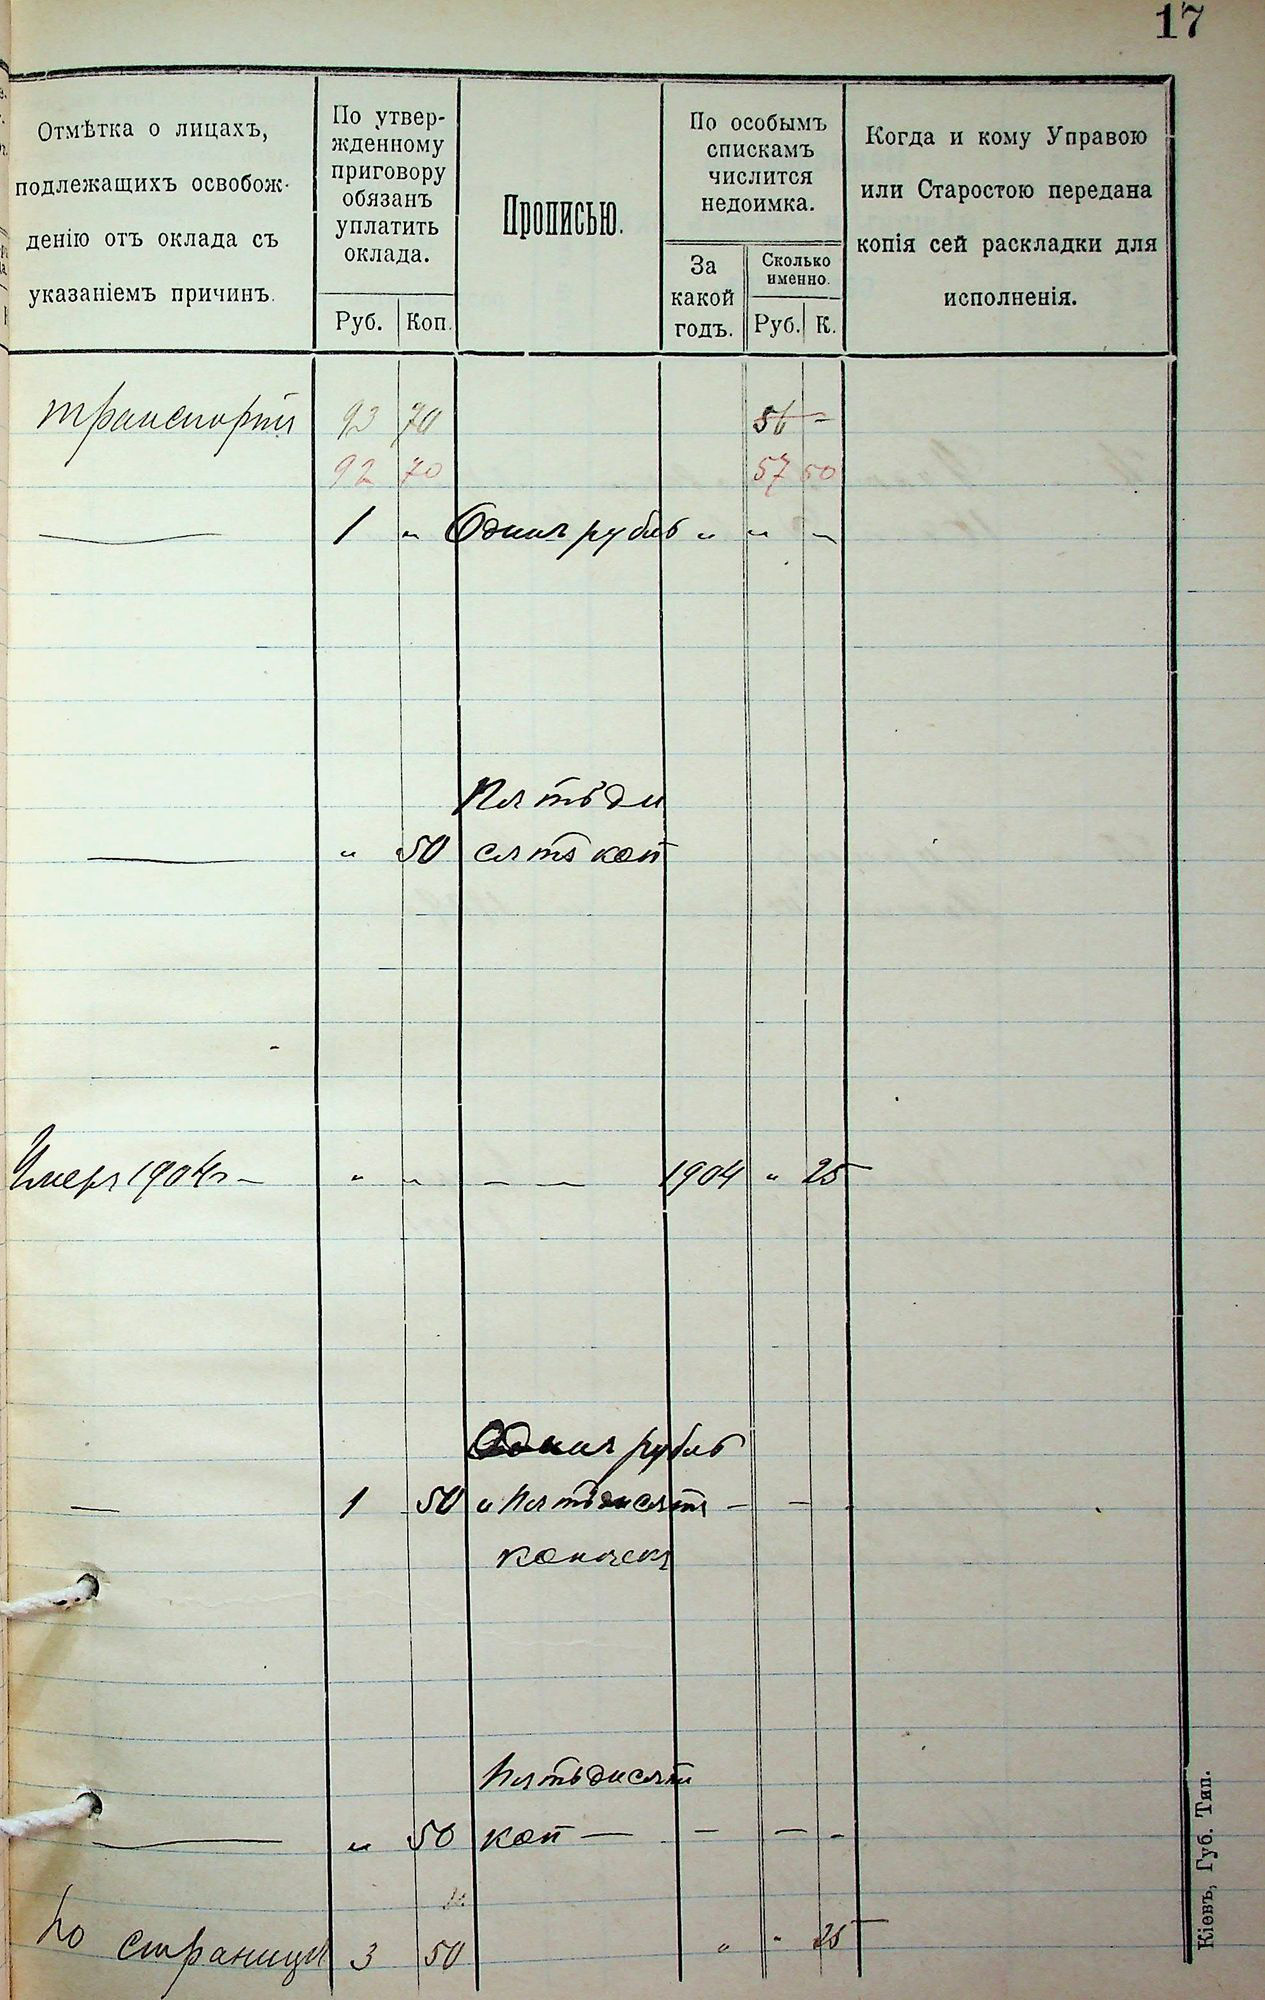 17
Отмѣтка о лицахъ,
подлежащихъ освобож-
денію отъ оклада съ
указаніемъ причинъ.
По утвер-
жденному
приговору
обязанъ
уплатить
оклада.
Руб. Коп.
Прописью.
По особымъ
спискамъ
числится
недоимка.
За
какой
годъ.
Сколько
именно.
Руб. К.
Когда и кому Управою
или Старостою передана
копія сей раскладки для
исполненія.
транспортъ 93 70 56 –
92 70 57 50
— 1 „ Одинъ рубль „ „ –
Пятьде
— „ 50 сятъ коп
Умеръ 1904 г – „ „ – – 1904 „ 25
Одинъ рубль
— 1 50 и пятьдесятъ – –
копѣекъ
Пятьдесятъ
— „ 50 коп – – – –
по страницѣ 3 50 „ „ 25
Кіевъ, Губ. Тип.